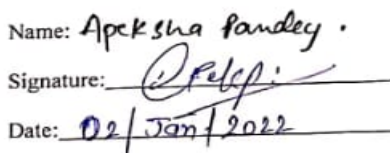 Name: Apeksha Pandey .
Signature:
Date: 02/Jan/2022